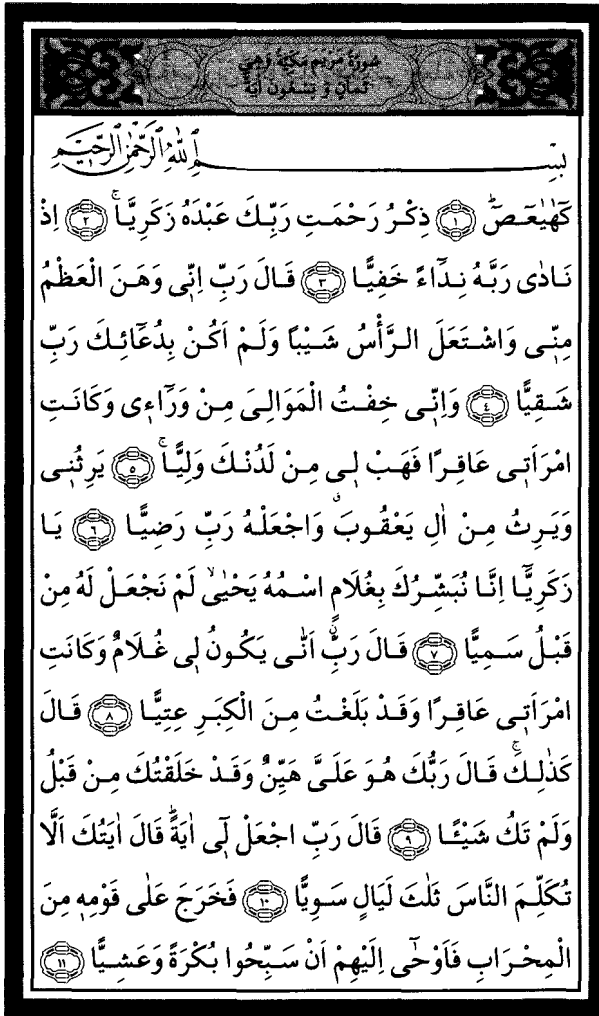 سُورَةُ مَرْيَمَ مَكِّيَّةٌ وَهِيَ
ثَمَانٍ وَ تِسْعُونَ اٰيَةً
بِسْمِ اللّٰهِ الرَّحْمٰنِ الرَّحٖيمِ
كٓهٰيٰعٓصٓۜ ﴿١﴾ ذِكْرُ رَحْمَتِ رَبِّكَ عَبْدَهُ زَكَرِيَّاۚ ﴿٢﴾ اِذْ
نَادٰى رَبَّهُ نِدَٓاءً خَفِيًّا ﴿٣﴾ قَالَ رَبِّ اِنّٖى وَهَنَ الْعَظْمُ
مِنّٖى وَاشْتَعَلَ الرَّأْسُ شَيْبًا وَلَمْ اَكُنْ بِدُعَٓائِكَ رَبِّ
شَقِيًّا ﴿٤﴾ وَاِنّٖى خِفْتُ الْمَوَالِىَ مِنْ وَرَٓاءٖى وَكَانَتِ
امْرَاَتٖى عَاقِرًا فَهَبْ لٖى مِنْ لَدُنْكَ وَلِيًّاۚ ﴿٥﴾ يَرِثُنٖى
وَيَرِثُ مِنْ اٰلِ يَعْقُوبَۗ وَاجْعَلْهُ رَبِّ رَضِيًّا ﴿٦﴾ يَا
زَكَرِيَّٓا اِنَّا نُبَشِّرُكَ بِغُلَامٍ اسْمُهُ يَحْيٰىۙ لَمْ نَجْعَلْ لَهُ مِنْ
قَبْلُ سَمِيًّا ﴿٧﴾ قَالَ رَبِّ اَنّٰى يَكُونُ لٖى غُلَامٌ وَكَانَتِ
امْرَاَتٖى عَاقِرًا وَقَدْ بَلَغْتُ مِنَ الْكِبَرِ عِتِيًّا ﴿٨﴾ قَالَ
كَذٰلِكَۚ قَالَ رَبُّكَ هُوَ عَلَىَّ هَيِّنٌ وَقَدْ خَلَقْتُكَ مِنْ قَبْلُ
وَلَمْ تَكُ شَيْـًٔا ﴿٩﴾ قَالَ رَبِّ اجْعَلْ لٖٓى اٰيَةًۜ قَالَ اٰيَتُكَ اَلَّا
تُكَلِّمَ النَّاسَ ثَلٰثَ لَيَالٍ سَوِيًّا ﴿١٠﴾ فَخَرَجَ عَلٰى قَوْمِهٖ مِنَ
الْمِحْرَابِ فَاَوْحٰٓى اِلَيْهِمْ اَنْ سَبِّحُوا بُكْرَةً وَعَشِيًّا ﴿١١﴾